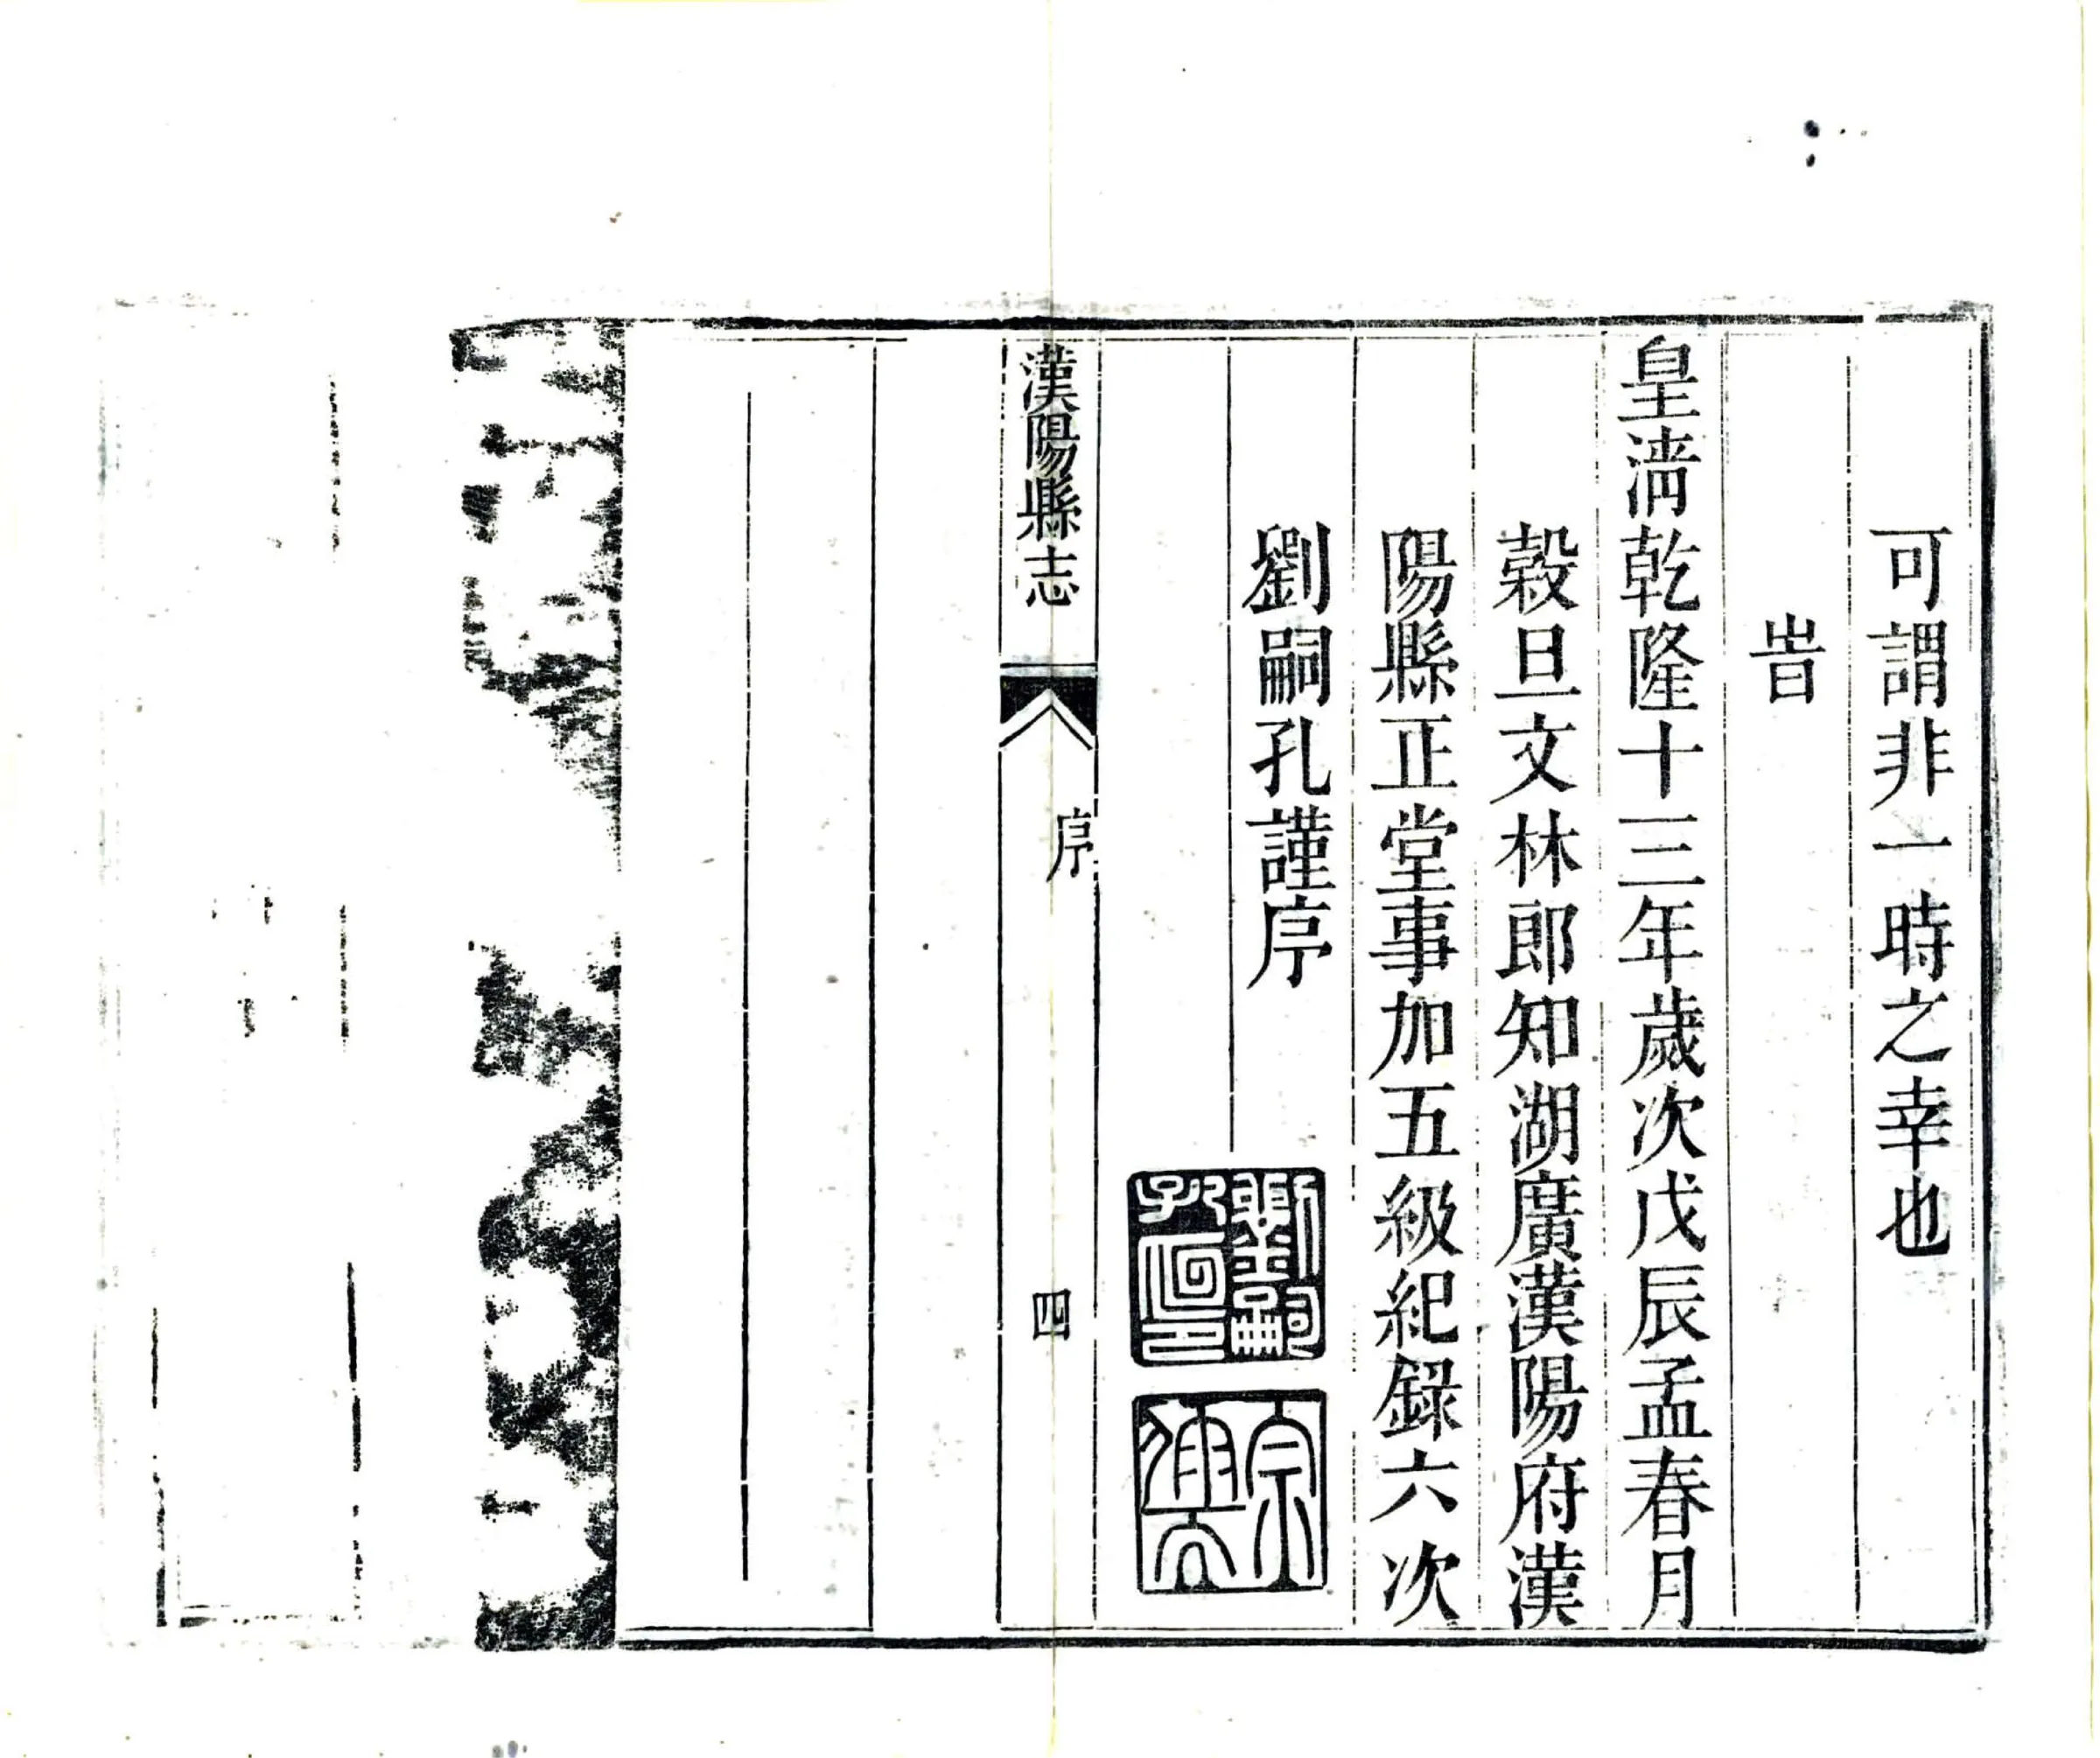 可謂非一時之幸也
旹
皇淸乾隆十三年歲次戊辰孟春月
穀旦文林郎知湖廣漢陽府漢
陽縣正堂事加五級紀錄六次
劉嗣孔謹序
劉嗣孔印
漢陽縣志
序
四